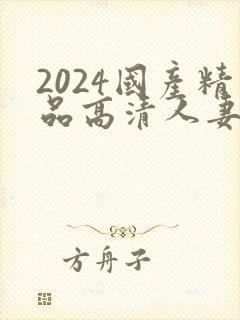 2024國產精
品高清人妻
方舟子